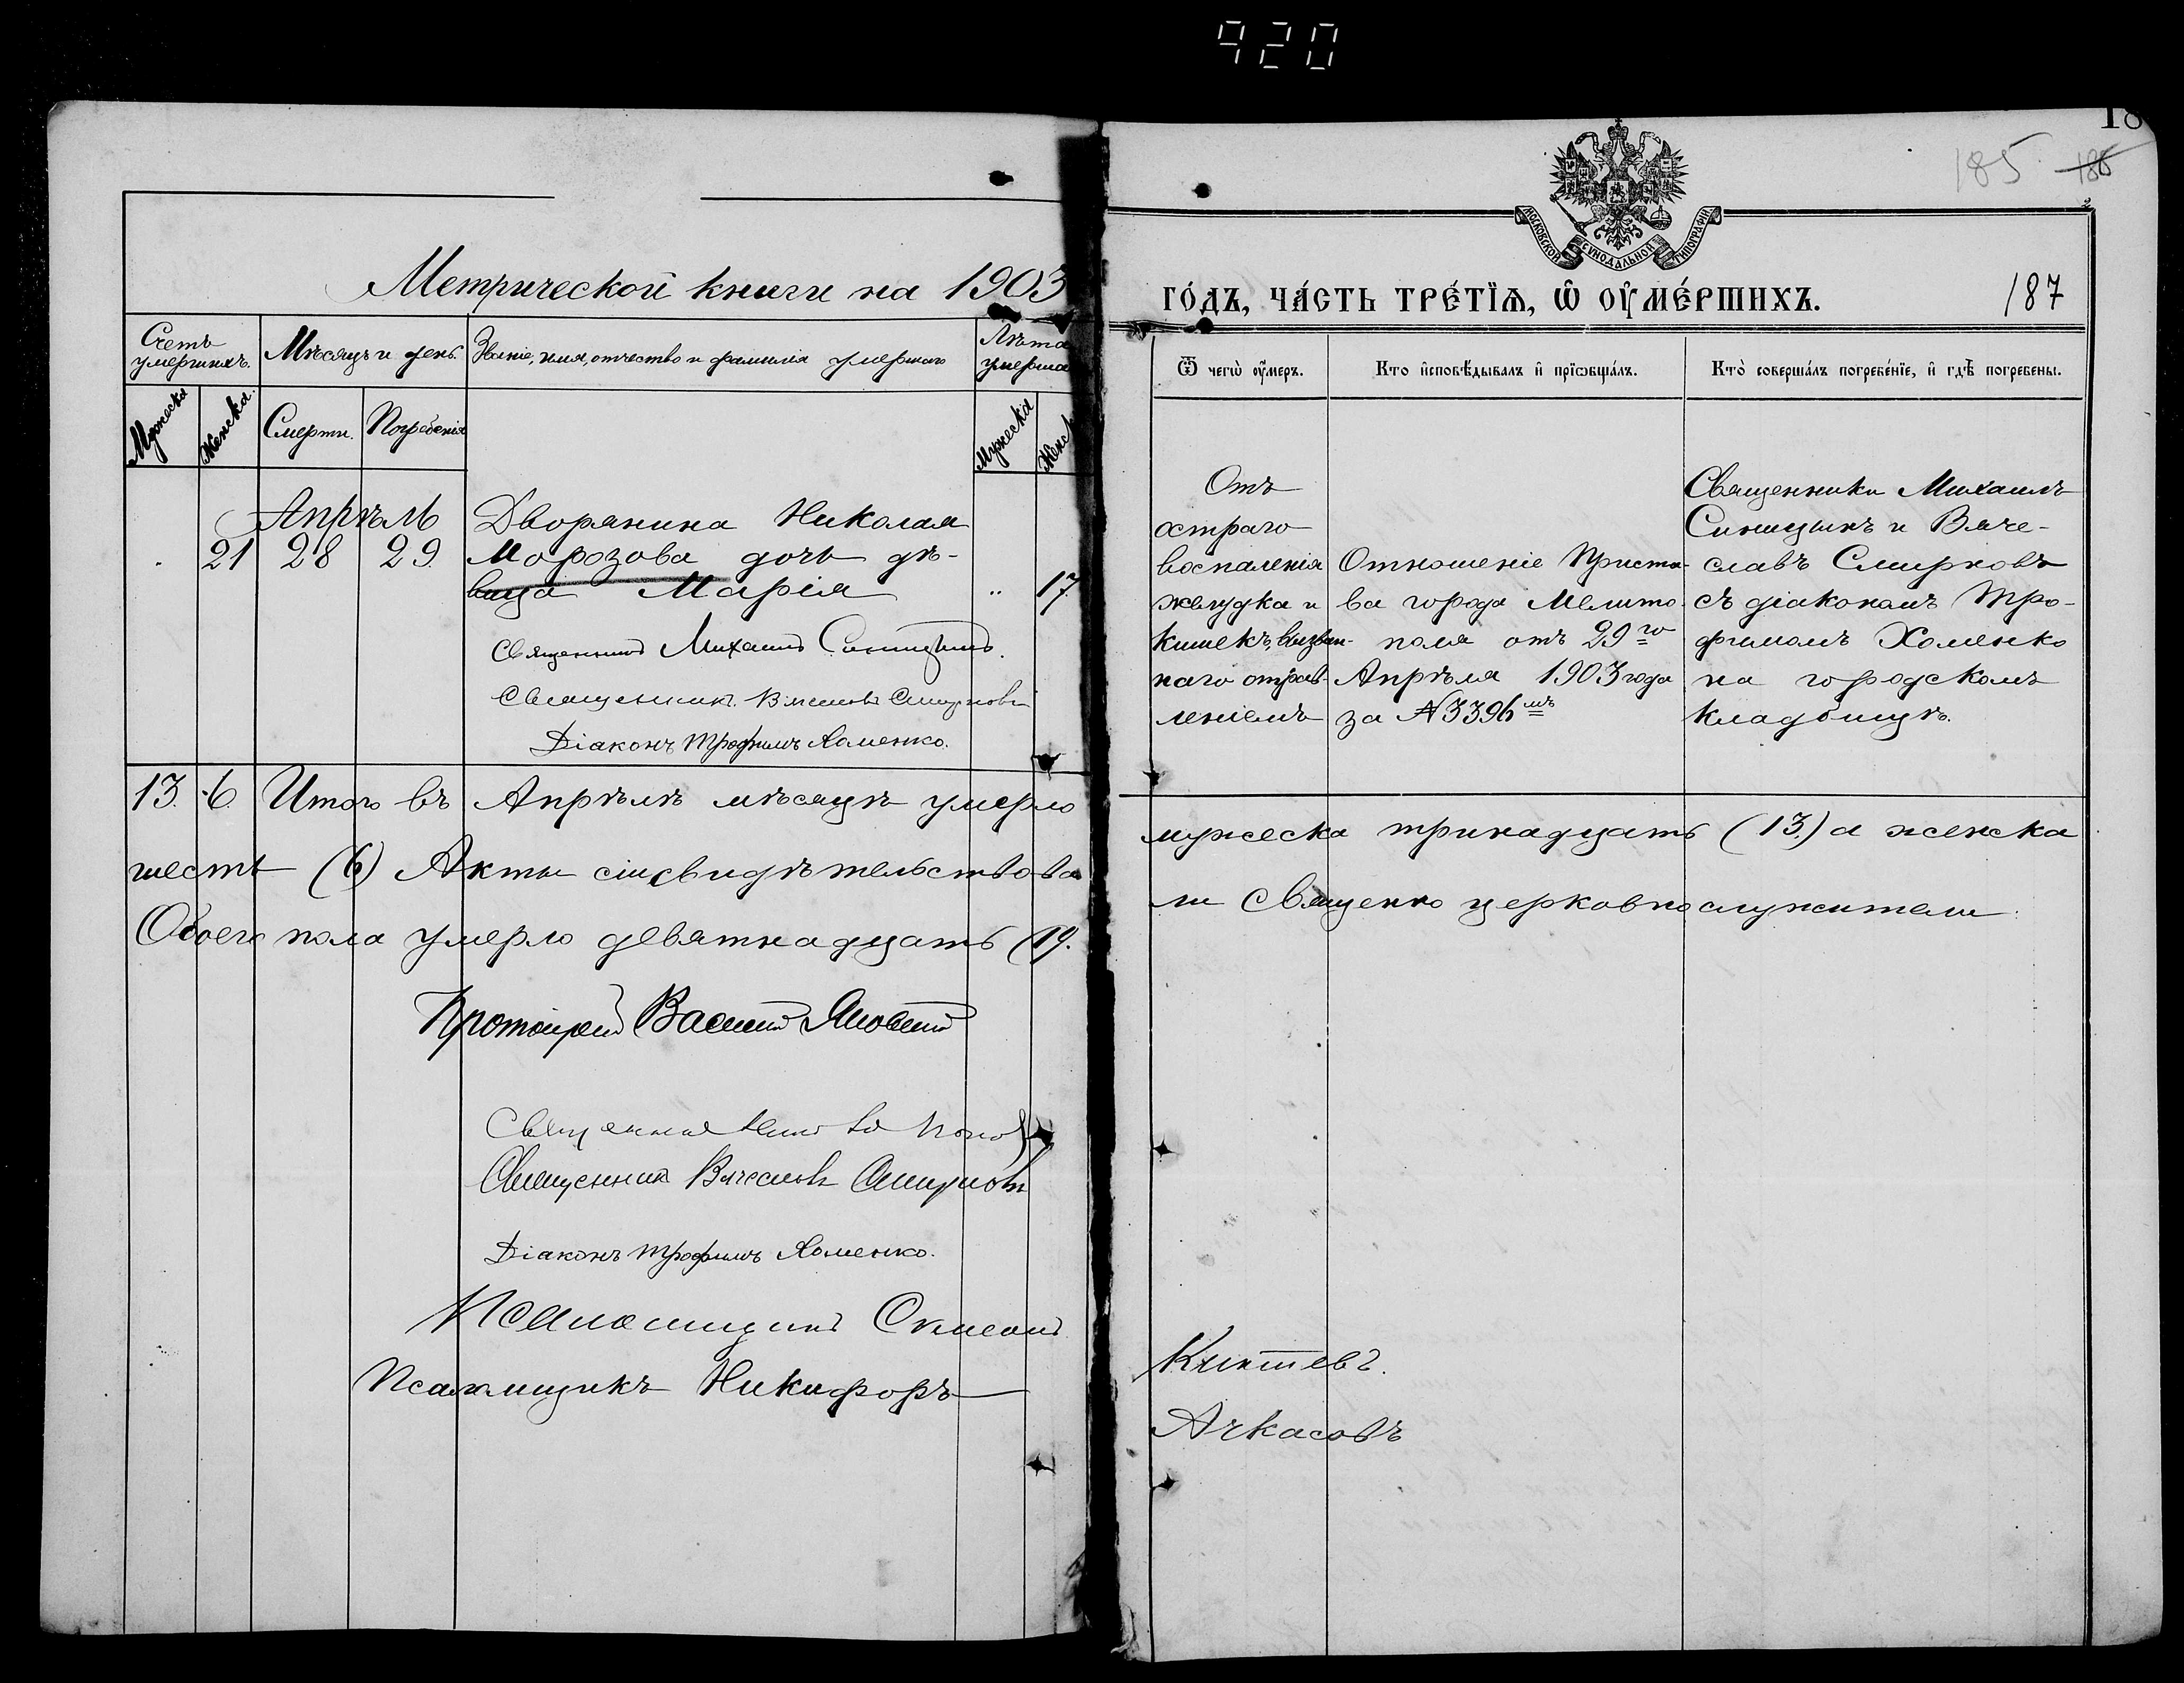 920
18
185 186
МОСКОВСКОЙ СѴНОДАЛЬНОЙ ТИПОГРАФІИ.
Метрической книги на 1903
го́дъ, ча́сть тре́тїѧ, ѡ҆ ᲂу҆ме́ршихъ.
187
Счетъ умершихъ.
Мѣсяцъ и день.
Званіе, имя, отчество и фамилія умершаго
Лѣта умерша
Мужеска
Женска.
Смерти.
Погребенія
Мужеска
Женск
Ѿ чегѡ̀ ᲂу҆́меръ.
Кто и҆сповѣ́дывалъ и҆ прїѡбща́лъ.
Кто̀ соверша́лъ погребе́нїе, и҆ гдѣ̀ погребены.
Апрѣль
21 28 29
Дворянина Николая
Морозова дочь дѣ-
вица Марія
" 17
Священникъ Михаилъ Синицынъ.
Священникъ Вячеславъ Смирновъ
Діаконъ Трофимъ Хоменко.
Отъ
остраго
воспаленія
желудка и
кишекъ, вызван-
наго отрав-
леніемъ
Отношеніе Приста-
ва города Мелито-
поля отъ 29го
Апрѣля 1903 года
за № 3396мъ
Священники Михаилъ
Синицынъ и Вяче-
славъ Смирновъ
съ діакономъ Тро-
фимомъ Хоменко
на городскомъ
кладбищѣ.
13. 6. Итого въ Апрѣлѣ мѣсяцѣ умерло мужеска тринадцать (13.) а женска
шесть (6) Акты сіи свидѣтельствова ли Священно церковнослужители:
Обоего пола умерло девятнадцать (19.
Протоіерей Василій
Священникъ
Священникъ Вячеславъ Смирновъ
Діаконъ Трофимъ Хоменко.
Псаломщикъ
Псаломщикъ Никифоръ Ачкасовъ